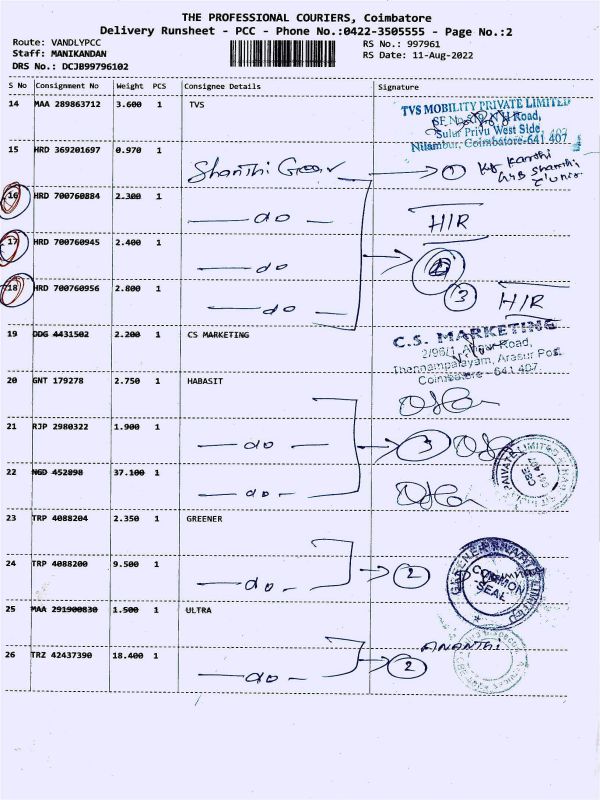 THE PROFESSIONAL COURIERS, Coimbatore
Delivery Runsheet - PCC - Phone No.:0422-3505555 - Page No.:2
Route: VANDLYPCC
RS No.: 997961
Staff: MANIKANDAN
RS Date: 11-Aug-2022
DRS No.: DCJB99796102
S No Consignment No Weight PCS Consignee Details Signature
14 MAA 289863712 3.600 1 TVS
TVS MOBILITY PRIVATE LIMITED
Road,
Sulur Privu West Side,
Nilambur, Coimbatore-641 407
15 HRD 369201697 0.970 1 Shanthi Gear 1
16 HRD 700760884 2.300 1 do H/R
17 HRD 700760945 2.400 1 do
18 HRD 700760956 2.800 1 do 3 H/R
19 DDG 4431502 2.200 1 CS MARKETING
C.S. MARKETING
2/96/1, Road,
Thennampalayam, Arasur Post,
Coimbatore - 641 407.
20 GNT 179278 2.750 1 HABASIT
21 RJP 2980322 1.900 1 do 3
22 NGD 452898 37.100 1 do
23 TRP 4088204 2.350 1 GREENER
24 TRP 4088200 9.500 1 do 2
GREENER PRIVATE LIMITED
COMMON
SEAL
25 MAA 291900830 1.500 1 ULTRA
ANANTHI
26 TRZ 42437390 18.400 1 do 2